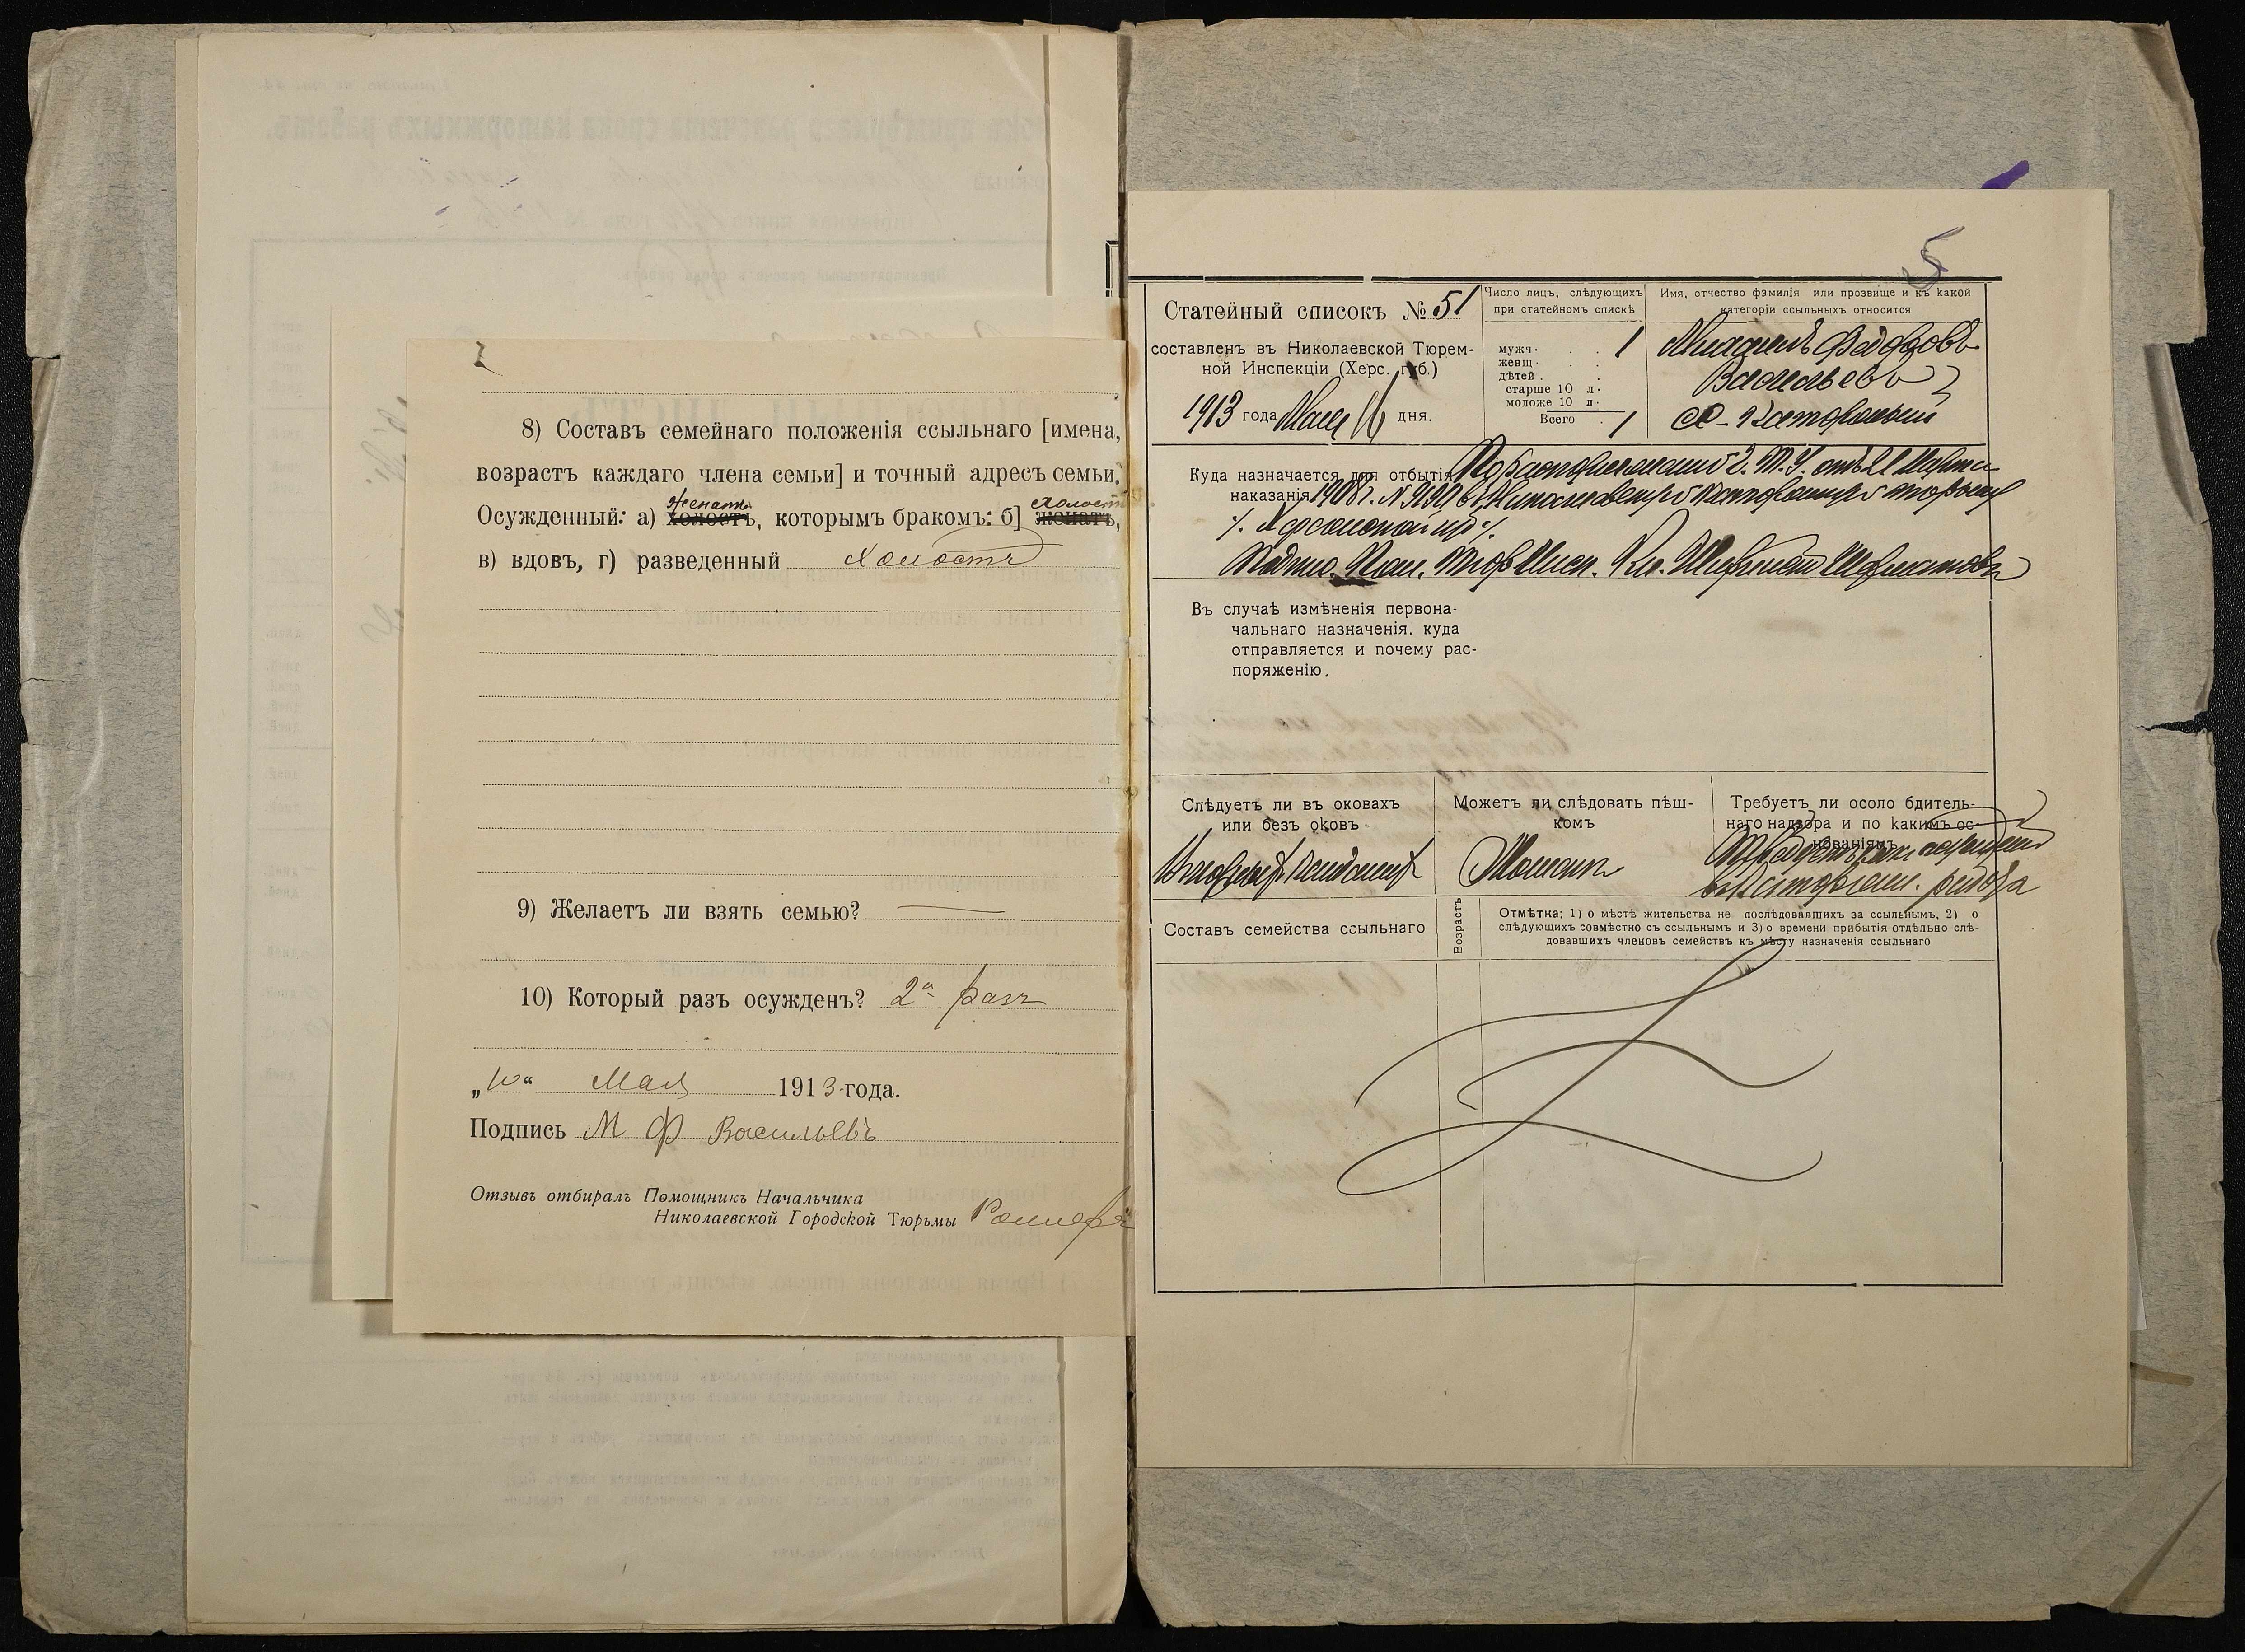 8) Составъ семейнаго положенія ссыльнаго [имена,
возрастъ каждаго члена семьи] и точный адресъ семьи.
женатъ холостъ
Осужденный: а) холостъ, которымъ бракомъ: б] женатъ,
в) вдовъ, г) разведенный Холостъ
9) Желаетъ ли взять семью?
10) Который разъ осужденъ? 2й разъ
Мая 1913 года.
Подпись М Ф Васильевъ
Отзывъ отбиралъ Помощникъ Начальника
Николаевской Городской Тюрьмы
5
Статейный списокъ № 51
составленъ въ Николаевской Тюрем-
ной Инспекціи (Херс. губ.)
1913 года Мая 16 дня.
Число лицъ, слѣдующихъ
при статейномъ спискѣ
мужч. 1
женщ.
дѣтей.
старше 10 л.
моложе 10 л.
Всего 1
Имя, отчество фамилія или прозвище и къ какой
категоріи ссыльныхъ относится
Михаилъ Федоровъ
Васильевъ
С-Каторжный
Куда назначается для отбытія По распоряженію Г. Т. У. отъ 21 Марта
наказанія 1908 г. № въ Николаевскую каторжную тюрьму
/. Херсонской губ /.
Подпис. Тюр. Инсп. Кн. Ширинскій Шихматовъ
Въ случаѣ измѣненія первона-
чальнаго назначенія, куда
отправляется и почему рас-
поряженію.
Слѣдуетъ ли въ оковахъ
или безъ оковъ
Можетъ ли слѣдовать пѣш-
комъ
Можетъ
Требуетъ ли осоло бдитель-
наго надзора и по какимъ ос-
нованіямъ
Требуетъ какъ
разряда
Составъ семейства ссыльнаго
Возрастъ
Отмѣтка: 1) о мѣстѣ жительства не послѣдовавшихъ за ссыльнымъ, 2) о
слѣдующихъ совмѣстно съ ссыльнымъ и 3) о времени прибытія отдѣльно слѣ-
довавшихъ членовъ семействъ къ мѣсту назначенія ссыльнаго